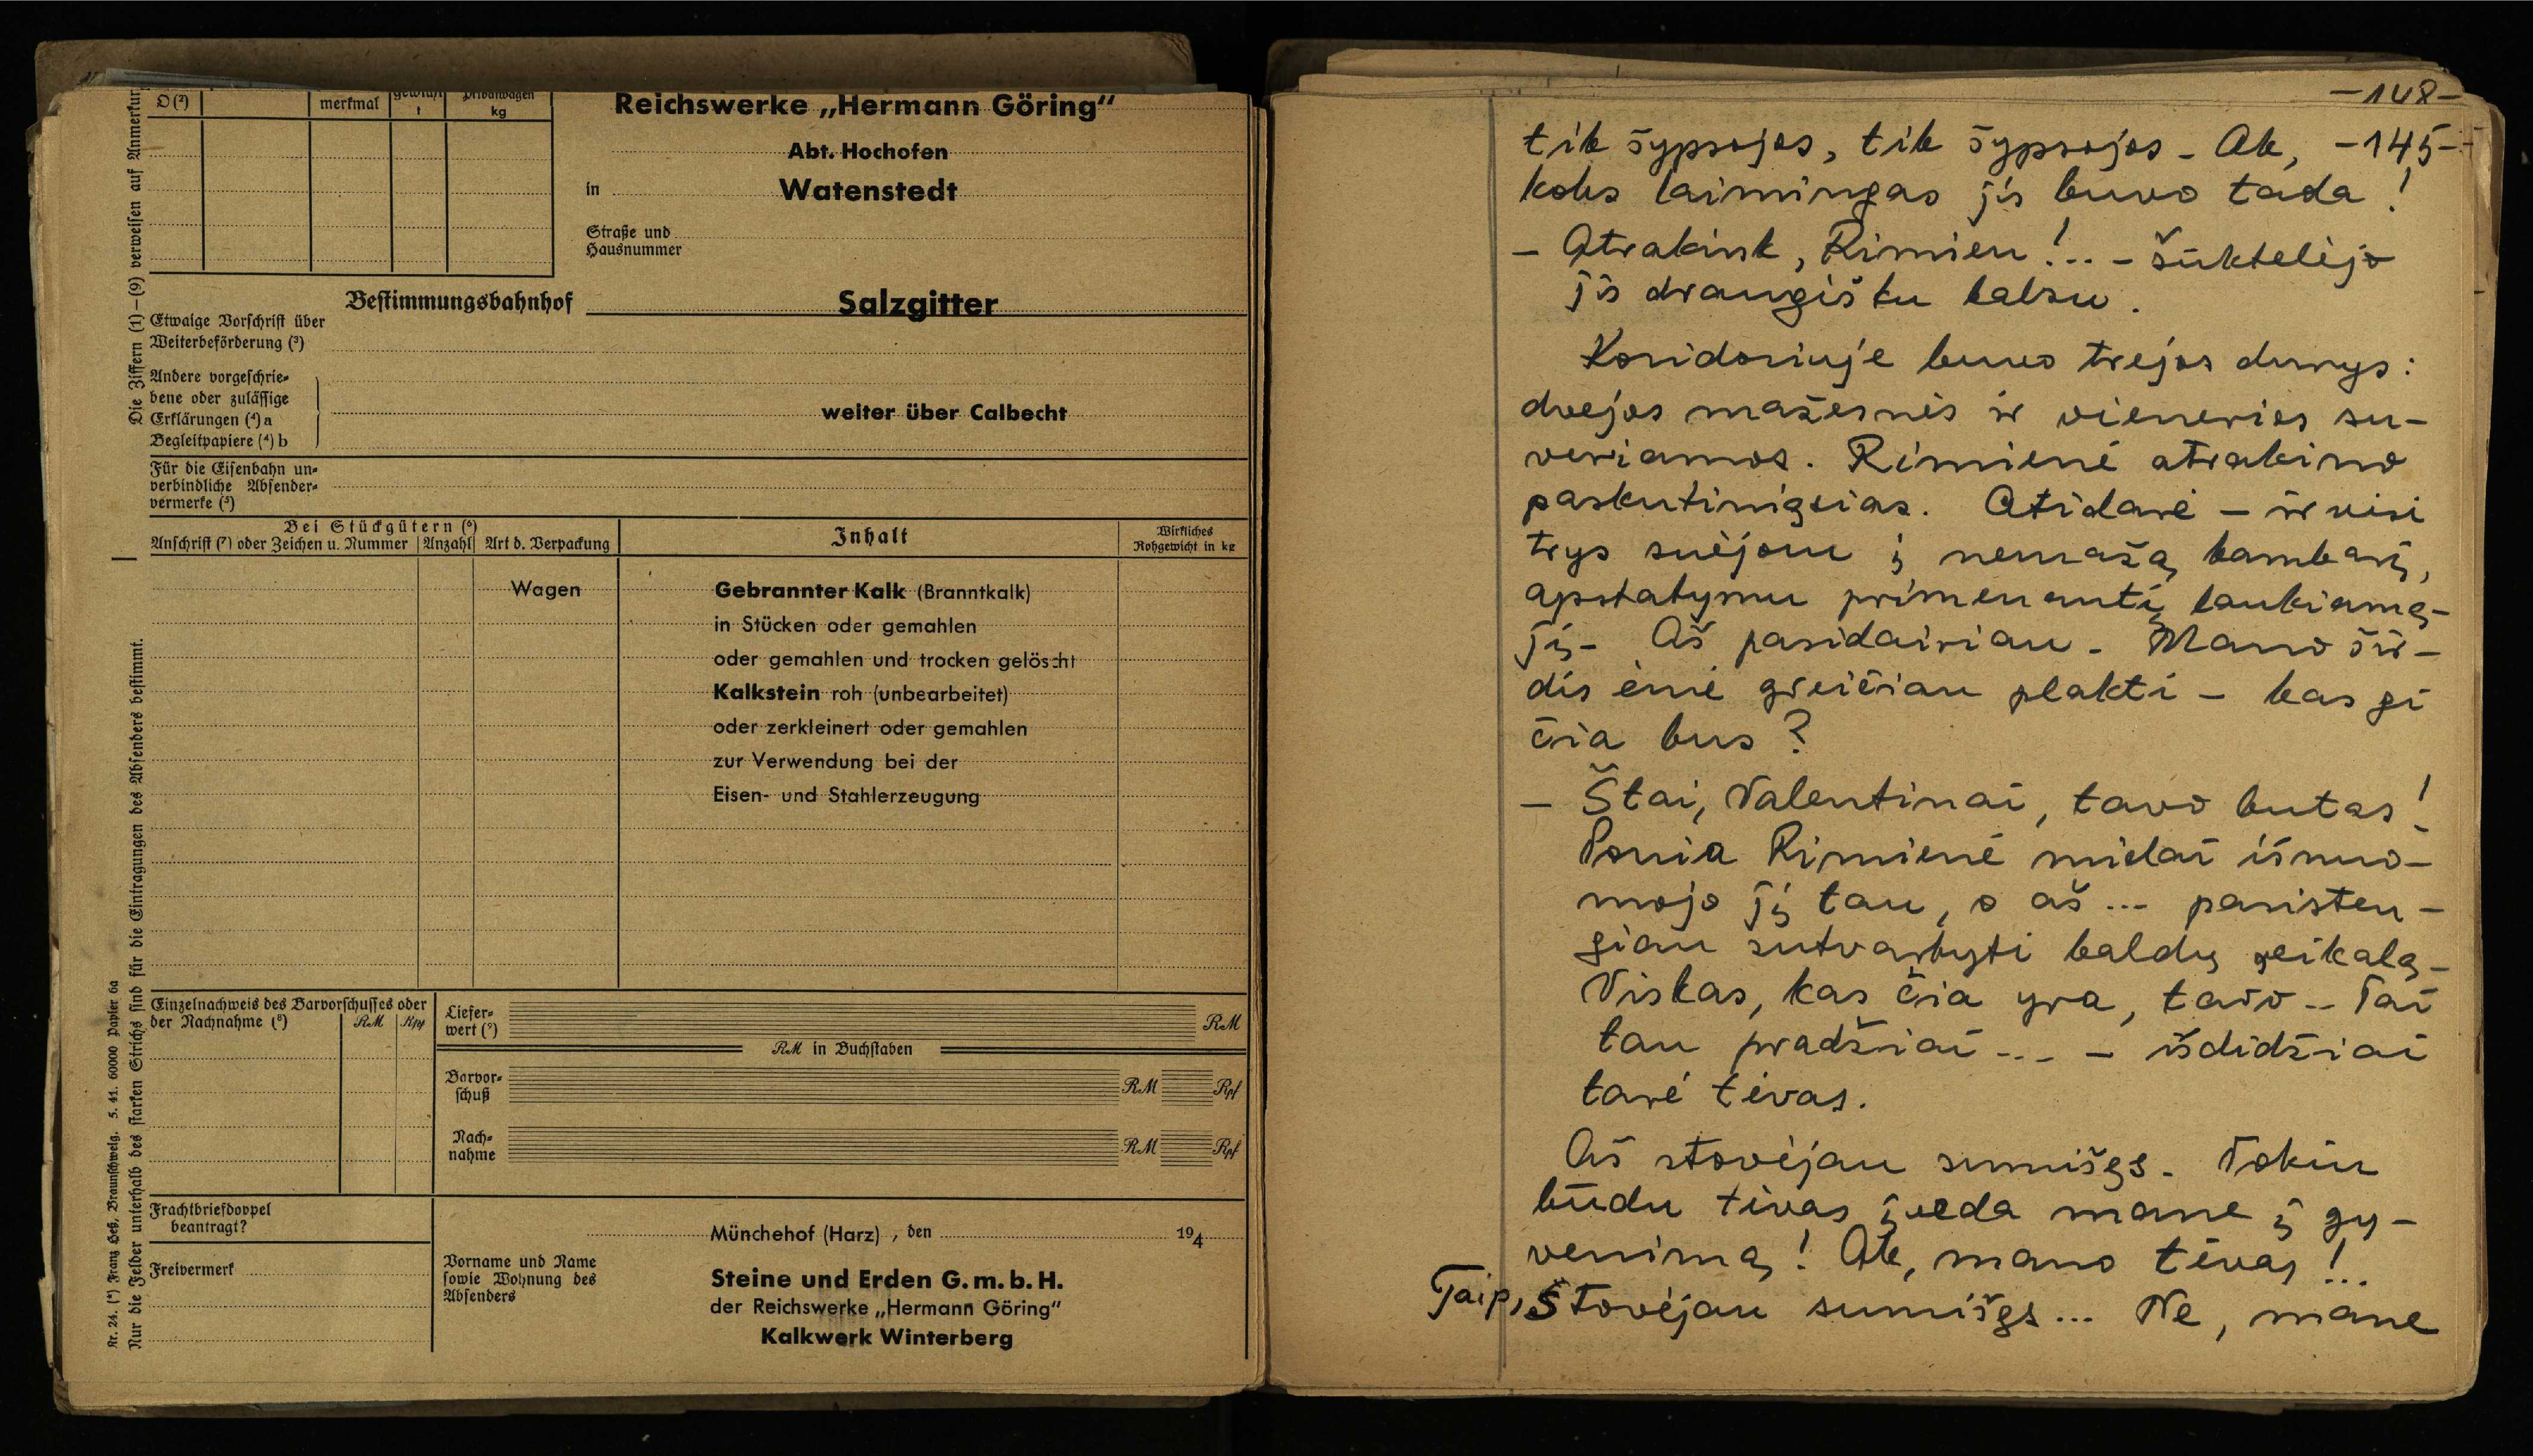 Die Ziffern (1)–(9) verweisen auf Anmerkun
Nur die Felder unterhalb des starken Strichs sind für die Eintragungen des Absenders bestimmt.
Nr. 24. (*) Franz Heß, Braunschweig. 5. 41. 60000 Papier 6a
D (²) merkmal gewicht t Privatwagen kg
Reichswerke „Hermann Göring“
Abt. Hochofen
in Watenstedt
Straße und
Hausnummer
Bestimmungsbahnhof Salzgitter
Etwaige Vorschrift über
Weiterbeförderung (³)
Andere vorgeschrie-
bene oder zulässige
Erklärungen (⁴) a
Begleitpapiere (⁴) b
weiter über Calbecht
Für die Eisenbahn un-
verbindliche Absender-
vermerke (⁵)
Bei Stückgütern (⁶)
Anschrift (⁷) oder Zeichen u. Nummer Anzahl Art d. Verpackung Inhalt Wirkliches
Rohgewicht in kg
Wagen Gebrannter Kalk (Branntkalk)
in Stücken oder gemahlen
oder gemahlen und trocken gelöscht
Kalkstein roh (unbearbeitet)
oder zerkleinert oder gemahlen
zur Verwendung bei der
Eisen- und Stahlerzeugung
Einzelnachweis des Barvorschusses oder
der Nachnahme (⁸) RM Rpf
Liefer-
wert (⁹) RM
RM in Buchstaben
Barvor-
schuß RM Rpf
Nach-
nahme RM Rpf
Frachtbriefdoppel
beantragt?
Freivermerk
Münchehof (Harz) , den 194
Vorname und Name
sowie Wohnung des
Absenders
Steine und Erden G.m.b.H.
der Reichswerke „Hermann Göring“
Kalkwerk Winterberg
-148-
tik šypsojos, tik šypsojos. Ak, -145-
koks laimingas jis buvo tada!
– Atrakink, Rimien!... – šūktelėjo
jis draugišku balsu.
Koridoriuje buvo trejos durys:
dvejos mažesnės ir vienerios su-
veriamos. Rimienė atrakino
paskutiniąsias. Atidarė – ir visi
trys suėjom į nemažą kambarį,
apstatymu primenantį laukiamą-
jį. Aš pasidairiau. Mano šir-
dis ėmė greičiau plakti – kas gi
čia bus?
– Štai, Valentinai, tavo butas!
Ponia Rimienė mielai išnuo-
mojo jį tau, o aš... pasisten-
giau sutvarkyti baldų reikalą.
Viskas, kas čia yra, tavo.. Tai
tau pradžiai... – išdidžiai
tarė tėvas.
Aš stovėjau sumišęs. Tokiu
būdu tėvas įveda mane į gy-
venimą! Ak, mano tėvas!...
Taip, Stovėjau sumišęs... Ne, mane